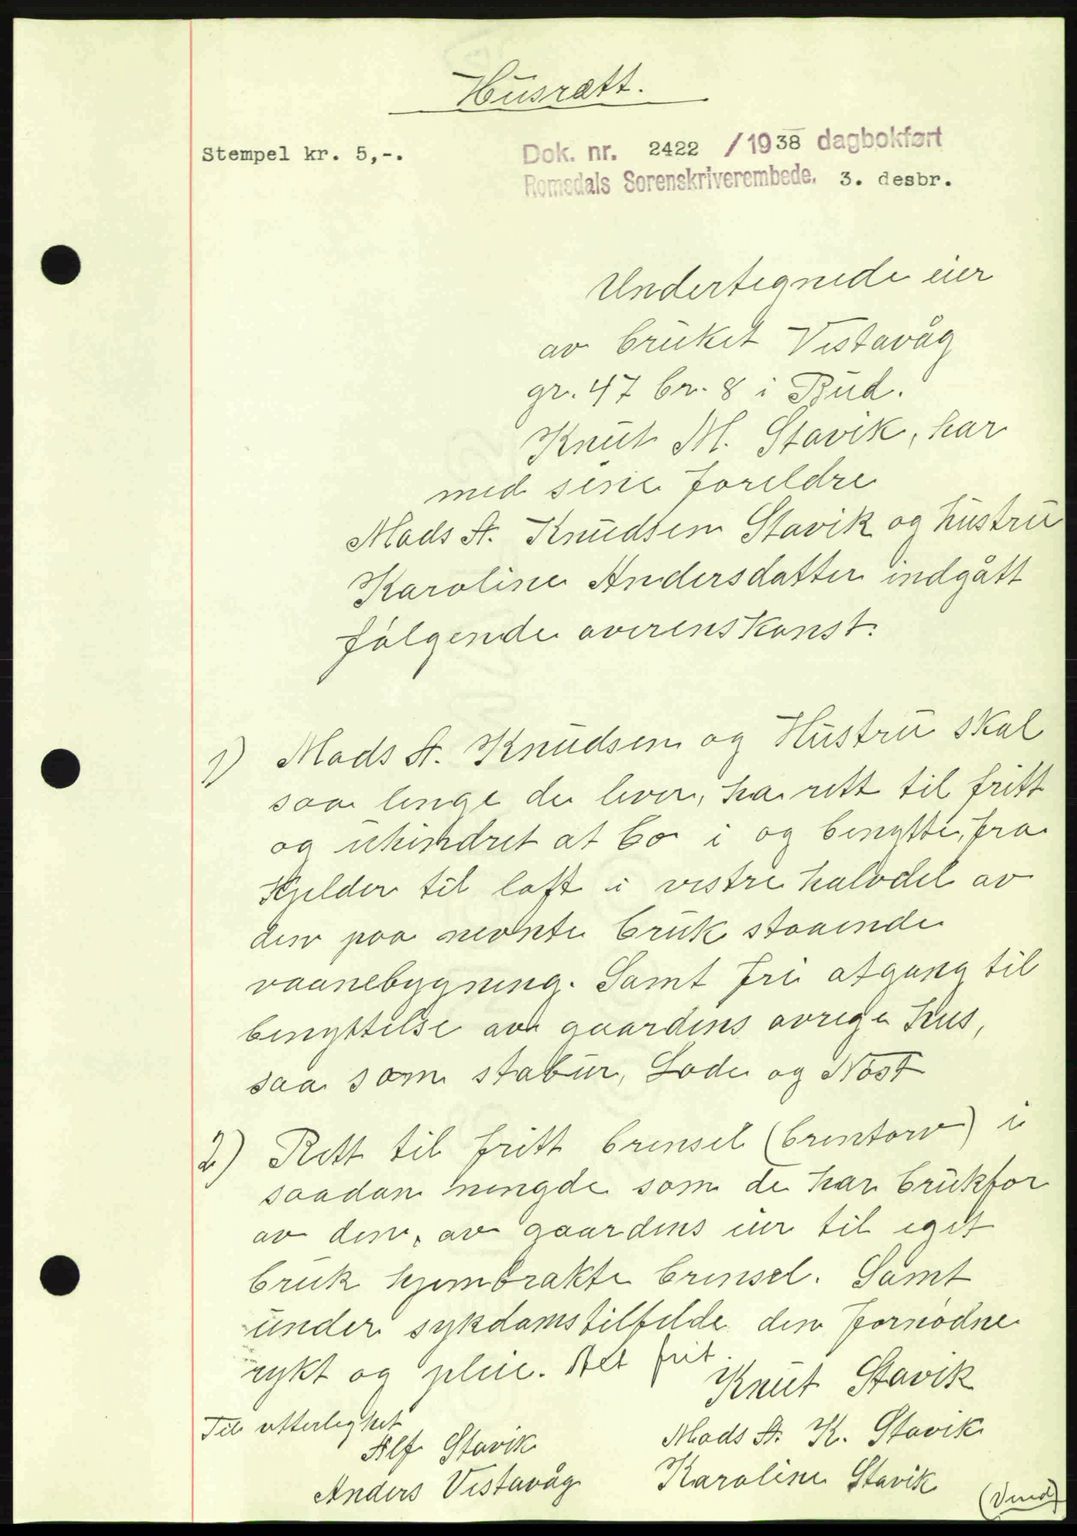 Husrætt.
Stempel kr. 5,-.
Dok. nr. 2422 /1938 dagbokført
Romsdals Sorenskriverembede. 3. desbr.
Undertegnede eier
av bruket Vestavåg
gr. 47 br. 8 i Bud.
Knut M. Stavik, har
med sine foreldre
Mads A. Knudsen Stavik og hustru
Karoline Andersdatter indgått
følgende overenskonst.
1) Mads A. Knudsen og Hustru skal
saa lenge de lever, ha rett til fritt
og uhindret at bo i og benytte, fra
Kjelder til loft i vestre halvdel av
den paa nevnte bruk staaende
vaanebygning. Samt fri atgang til
benyttelse av gaardens øvrige hus,
saa som stabur, Løde og Nøst
2) Rett til fritt brensel (brentorv) i
saadan mengde som de har bruk for
av den, av gaardens eier til eget
bruk hjembrakte brensel. Samt
under sykdomstilfelde den fornødne
rykt og pleie. Alt frit.
Knut Stavik
Til vitterlighet
Alf Stavik
Mads A. K. Stavik
Anders Vestavåg
Karoline Stavik
(Vend)